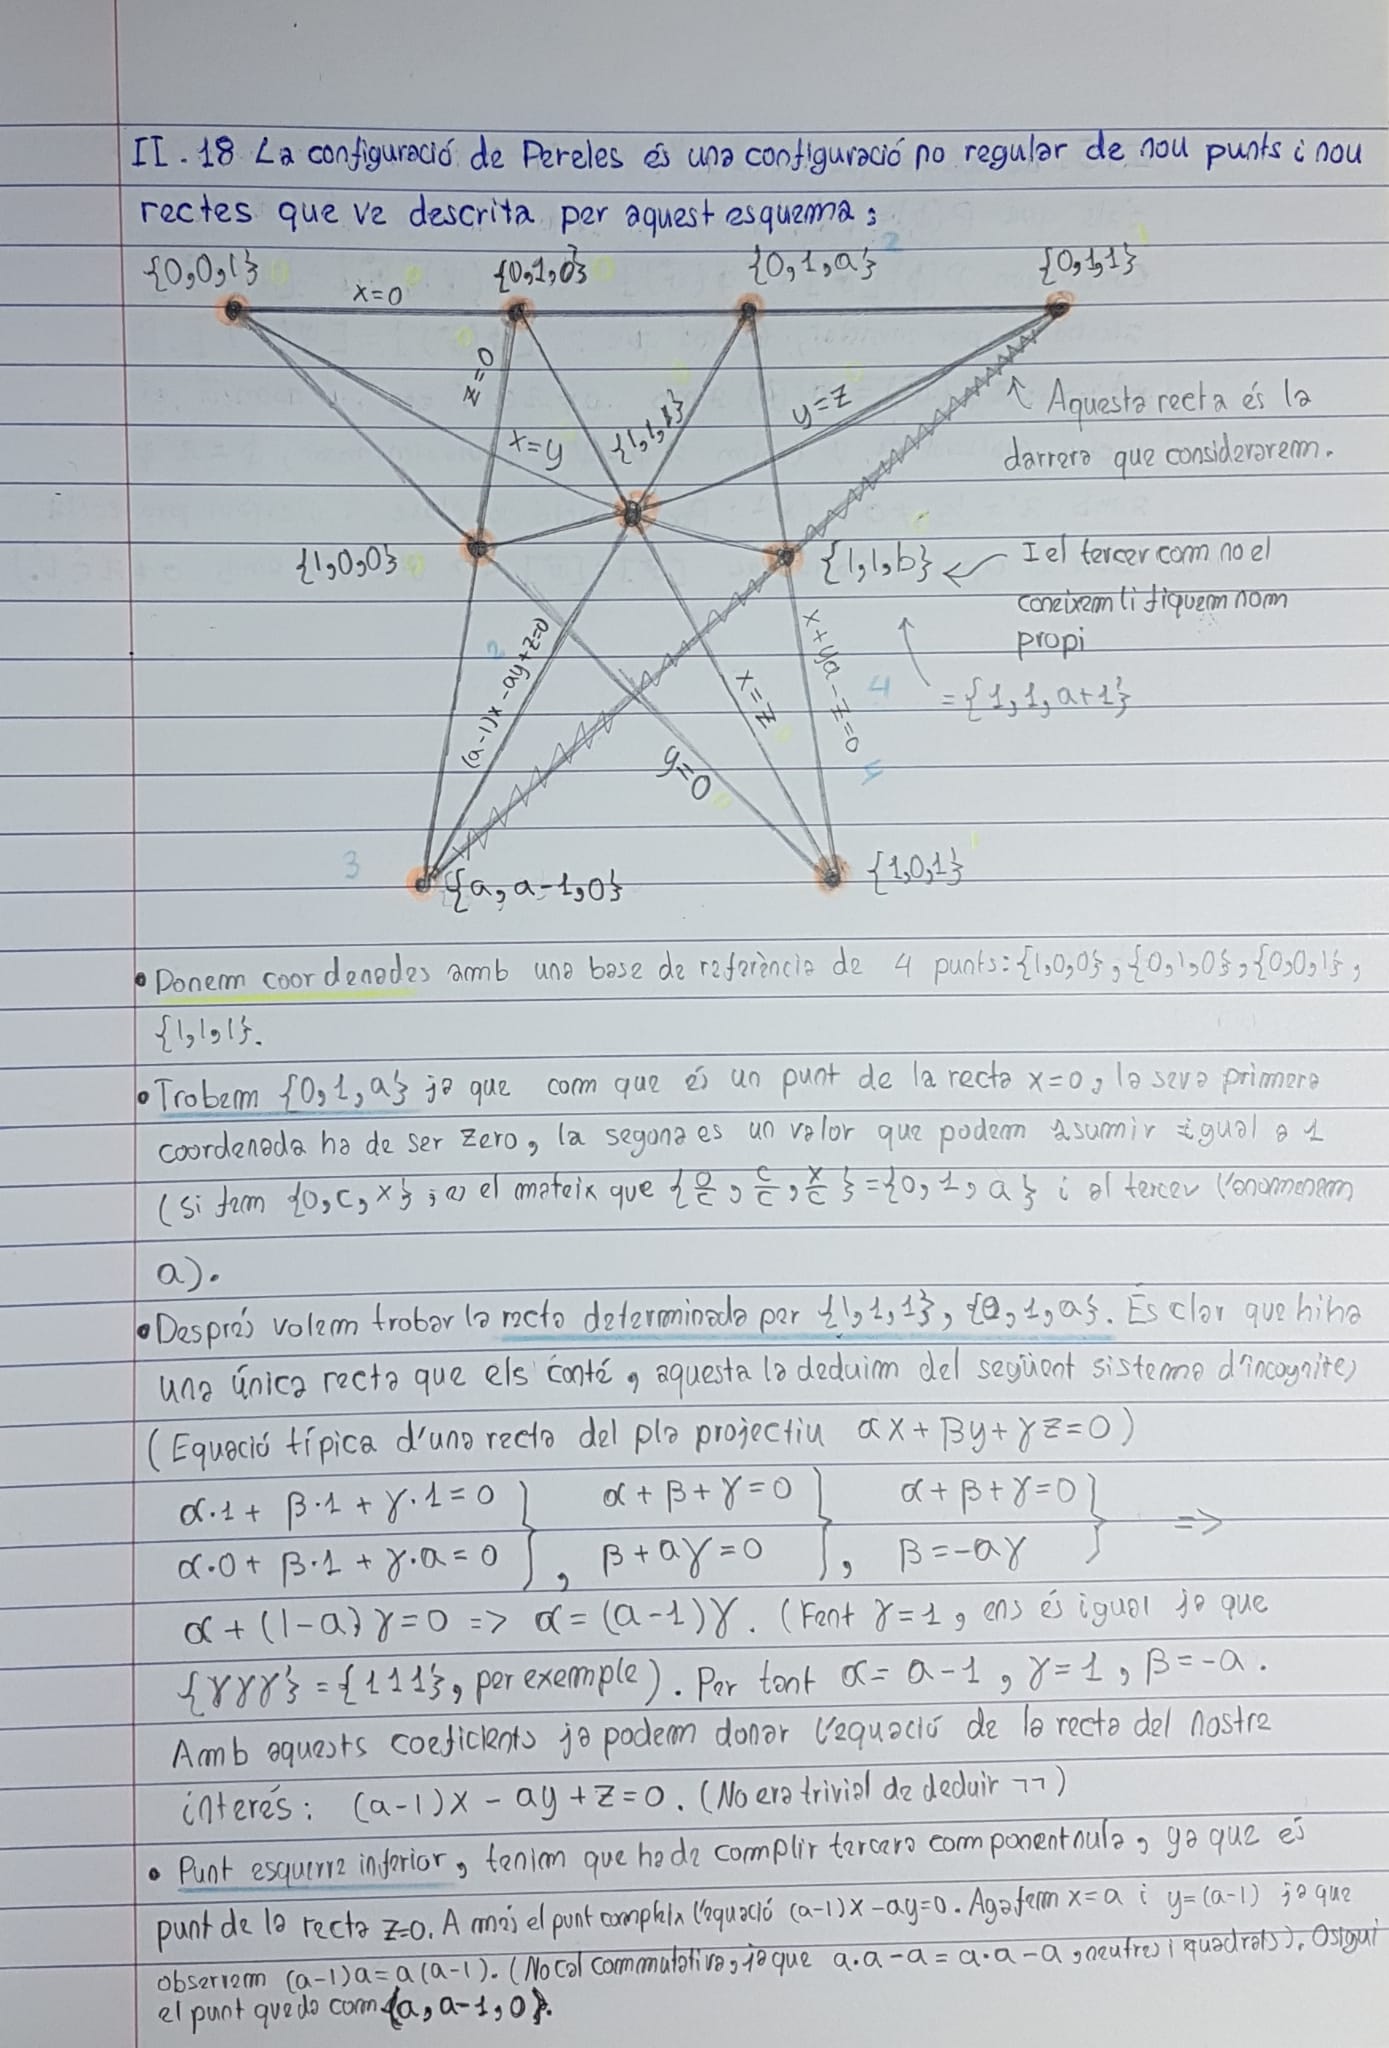 II.18 La configuració de Pereles és una configuració no regular de nou punts i nou
rectes que ve descrita per aquest esquema:
{0,0,1}
{0,1,0}
{0,1,a}
2
{0,1,1}
x=0
z=0
x=y
{1,1,1}
y=z
↑ Aquesta recta és la
darrera que considerarem.
{1,0,0}
{1,1,b}
I el tercer com no el
coneixem li fiquem nom
propi
= {1,1,a+1}
2
(a-1)x-ay+z=0
x=z
x+ya-z=0
4
y=0
3
{a,a-1,0}
{1,0,1}
• Donem coordenades amb una base de referència de 4 punts: {1,0,0}, {0,1,0}, {0,0,1},
{1,1,1}.
• Trobem {0,1,a} ja que com que és un punt de la recta x=0, la seva primera
coordenada ha de ser zero, la segona es un valor que podem asumir igual a 1
(si fem {0,c,x}; es el mateix que {0/c, c/c, x/c} = {0,1,a} i al tercer l'anomenem
a).
• Després volem trobar la recta determinada per {1,1,1}, {0,1,a}. És clar que hi ha
una única recta que els conté, aquesta la deduim del següent sistema d'incognites
(Equació típica d'una recta del pla projectiu αx+βy+γz=0)
α·1+ β·1+ γ·1=0 } α+β+γ=0 } α+β+γ=0 } =>
α·0+ β·1+ γ·a=0 }, β+aγ=0 }, β=-aγ }
α+(1-a)γ=0 => α=(a-1)γ. (Fent γ=1, ens és igual ja que
{γγγ}={111}, per exemple). Per tant α=a-1, γ=1, β=-a.
Amb aquests coeficients ja podem donar l'equació de la recta del nostre
interés: (a-1)x-ay+z=0. (No era trivial de deduir ¬¬)
• Punt esquerre inferior, teniam que ha de complir tercera component nula, ya que és
punt de la recta z=0. A més el punt compleix l'equació (a-1)x-ay=0. Agafem x=a i y=(a-1) ja que
observem (a-1)a=a(a-1). (No cal commutativa, ja que a·a-a=a·a-a, neutres i quadrats). Osigui
el punt queda com {a,a-1,0}.